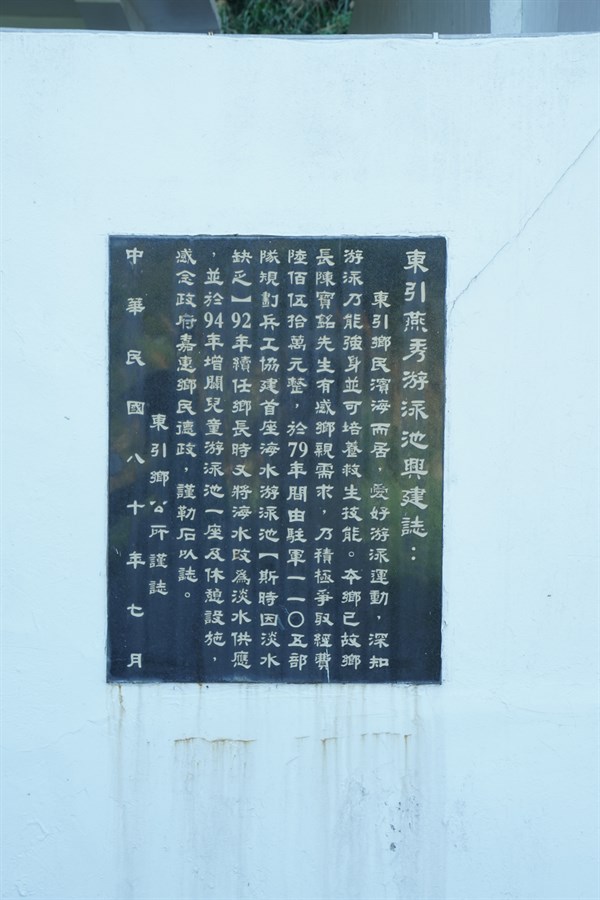 東引燕秀游泳池興建誌：
東引鄉民濱海而居，愛好游泳運動，深知
游泳乃能強身並可培養救生技能。本鄉已故鄉
長陳寶銘先生有感鄉親需求，乃積極爭取經費
陸佰伍拾萬元整，於79年間由駐軍一一〇五部
隊規劃兵工協建首座海水游泳池【斯時因淡水
缺乏】92年續任鄉長時又將海水改為淡水供應
，並於94年增闢兒童游泳池一座及休憩設施，
感念政府嘉惠鄉民德政，謹勒石以誌。
東引鄉公所謹誌
中華民國八十年七月